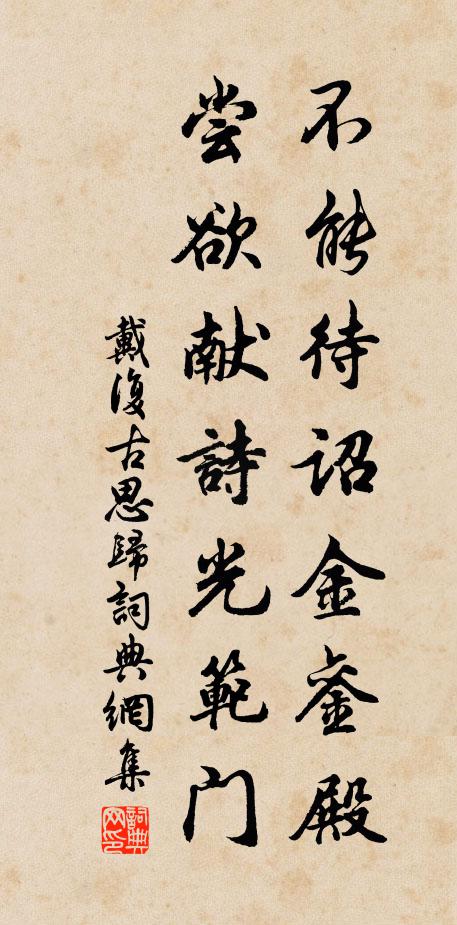 不能待詔金銮殿
尝欲献詩光範门
戴復古思歸詞典網集
詞典
网印